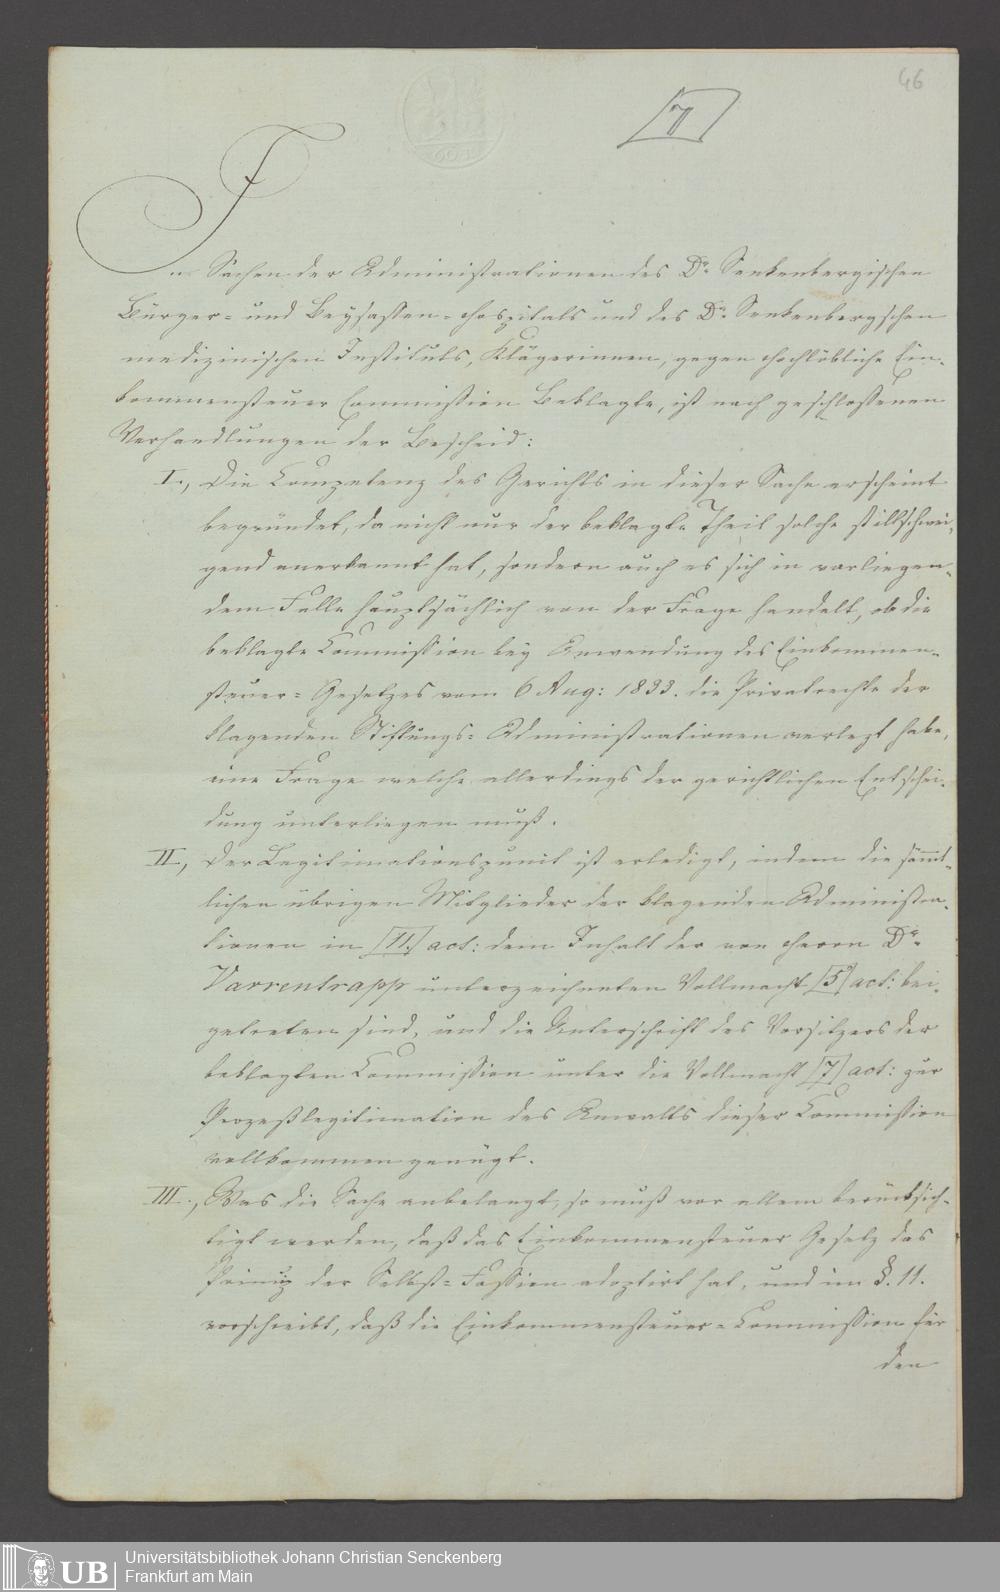 46
7
In Sachen der Administrationen des Dr. Senkenbergischen
Bürger- und Beysassen-Hospitals und des Dr. Senkenbergschen
medizinischen Instituts, Klägerinnen, gegen Hochlöbliche Ein-
kommensteuer Commißion Beklagte, ist nach geschlossenen
Verhandlungen der Bescheid:
I., Die Competenz des Gerichts in dieser Sache erscheint
begründet, da nicht nur der beklagte Theil solche stillschwei-
gend anerkannt hat, sondern auch es sich in vorliegen-
dem Falle hauptsächlich von der Frage handelt, ob die
beklagte Commißion bey Anwendung des Einkommen-
steuer-Gesetzes vom 6 Aug: 1833. die Privatrechte der
klagenden Stiftungs-Administrationen verlezt habe,
eine Frage welche allerdings der gerichtlichen Entschei-
dung unterliegen muß.
II., Der Legitimationspunkt ist erledigt, indem die sämmt-
lichen übrigen Mitglieder der klagenden Administra-
tionen in [11.] act: dem Inhalt der von Herrn Dr.
Varrentrapp unterzeichneten Vollmacht [5] act: bei-
getreten sind, und die Unterschrift des Vorsitzers der
beklagten Commißion unter die Vollmacht [7] act: zur
Prozeßlegitimation des Anwalts dieser Commißion
vollkommen genügt.
III., Was die Sache anbelangt, so muß vor allem berücksich-
tigt werden, daß das Einkommensteuer Gesetz das
Prinzip der Selbst-Faßion adoptirt hat, und im §. 11.
vorschreibt, daß die Einkommensteuer-Commißion für
den
UB
Universitätsbibliothek Johann Christian Senckenberg
Frankfurt am Main